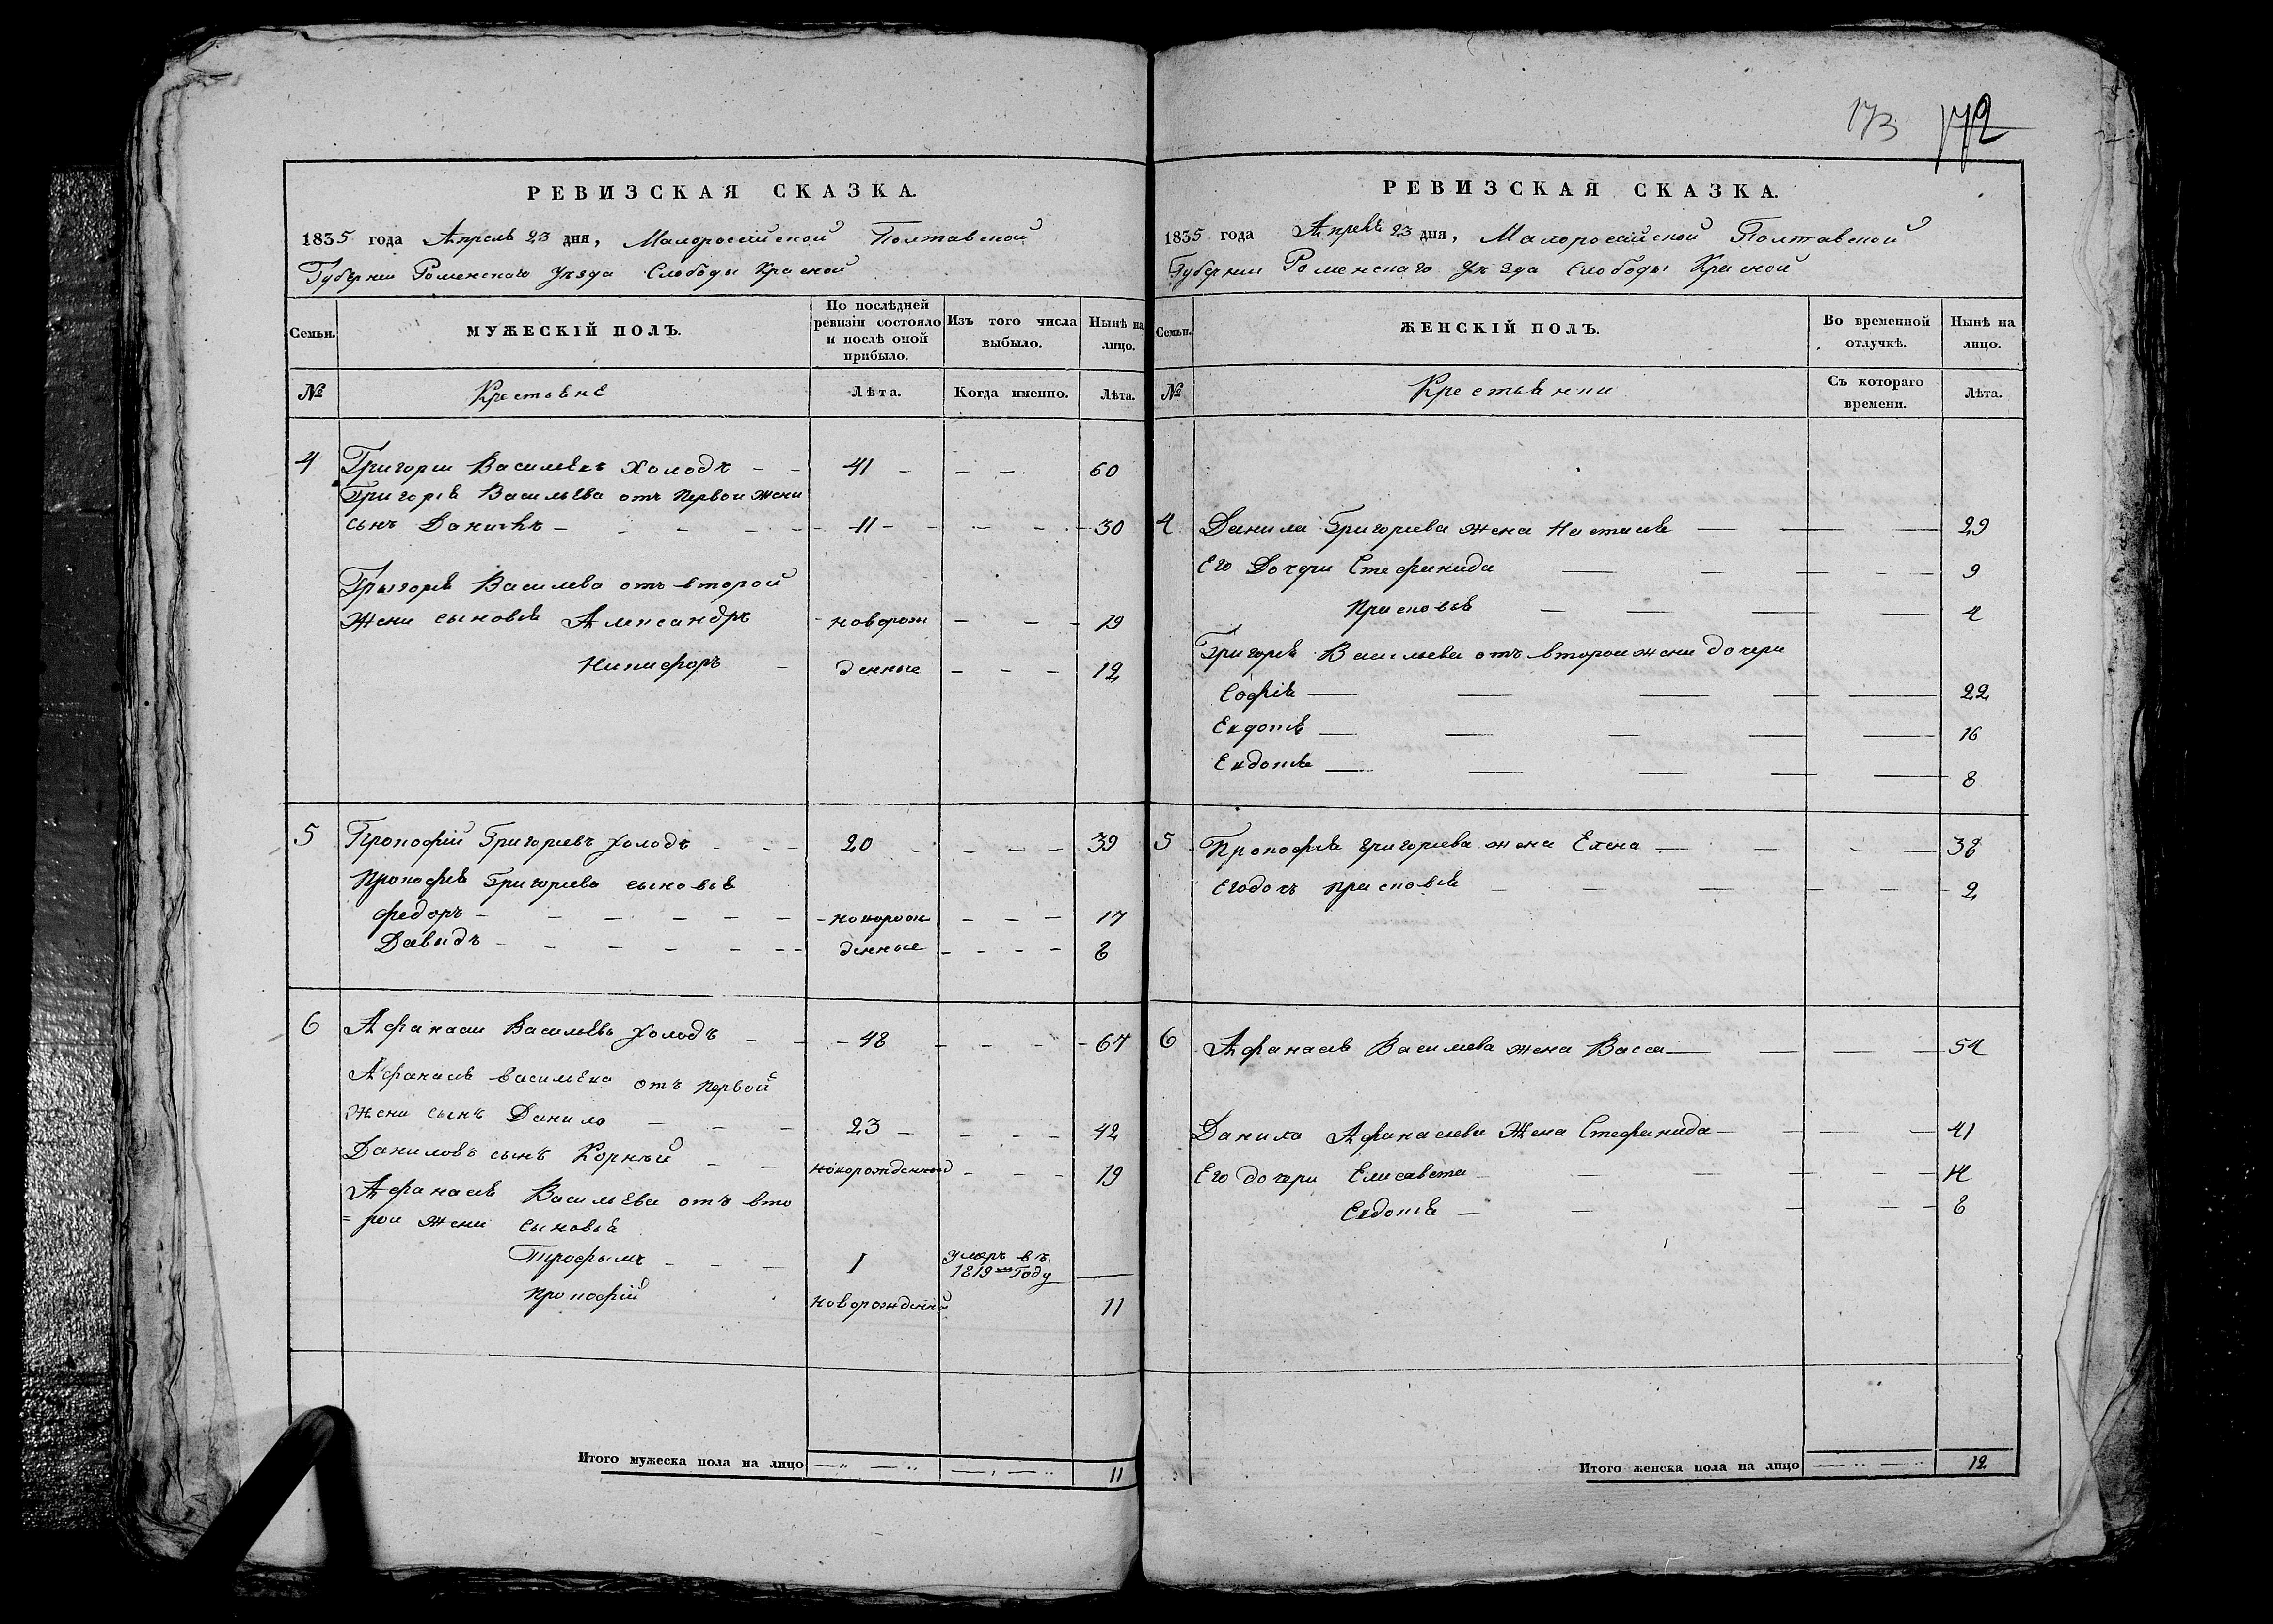 173 172
РЕВИЗСКАЯ СКАЗКА.
1835 года Апрель 23 дня, Малоросейской Полтавской
Губернии Роменскаго Уезда Слободы Красной
Семьи. МУЖЕСКІЙ ПОЛЪ. По послѣдней ревизіи состояло и послѣ оной прибыло. Изъ того числа выбыло. Нынѣ на лицо.
№ Крестьяне Лѣта. Когда именно. Лѣта.
4 Григории Васильевъ Холодъ - - 41 - - - 60
Григорія Васильева отъ первои жени
сынъ Данилъ - - - - - 11 - - - - 30
Грыгорія Василева отъ второй
Жени сыновья Александръ - новорож - - - 19
Никифоръ - денные - - - 12
5 Прокофій Григорьевъ Холодъ - - - 20 - - - - 39
Прокофія Григорьева сыновья
Федоръ - - - - - - - новорож - - - 17
Давидъ - - - - - - - денные - - - - 8
6 Афанасии Васильевъ Холодъ - - - 48 - - - - 67
Афанасія Васильева отъ первой
Жени сынъ Данило - - - 23 - - - - 42
Даниловъ сынъ Корнѣй - - новорожденный - - - 19
Афанасія Васильева отъ вто
=рои Жени сыновья
Трофымъ - - - 1 умеръ въ
1819м Году —
Прокофій новорожденный 11
Итого мужеска пола на лицо — „ — „ — „ — „ 11
РЕВИЗСКАЯ СКАЗКА.
1835 года Апрель 23 дня, Малоросейской Полтавской
Губернии Роменскаго Уезда Слободы Красной
Семьи. ЖЕНСКІЙ ПОЛЪ. Во временной отлучкѣ. Нынѣ на лицо.
№ Крестьянки Съ котораго времени. Лѣта.
4 Данила Григорьева жена Настасія — — — — 29
Его Дочери Стефанида — — — - - 9
Прасковья — — — — 4
Григорія Васильева отъ второи жени дочери
Софія — — — — 22
Евдотія — — — — — 16
Евдотія — — — — — 8
5 Прокофія Григорьева жена Елена — — - — 38
Его дочь Прасковья - — — - - 2
6 Афанасія Василиева жена Васса — — — — 54
Данила Афанасиева Жена Стефанида — — — — 41
Его дочери Елисавета - — — - - 14
Евдотія — — — — - 8
Итого женска пола на лицо — „ — „ 12